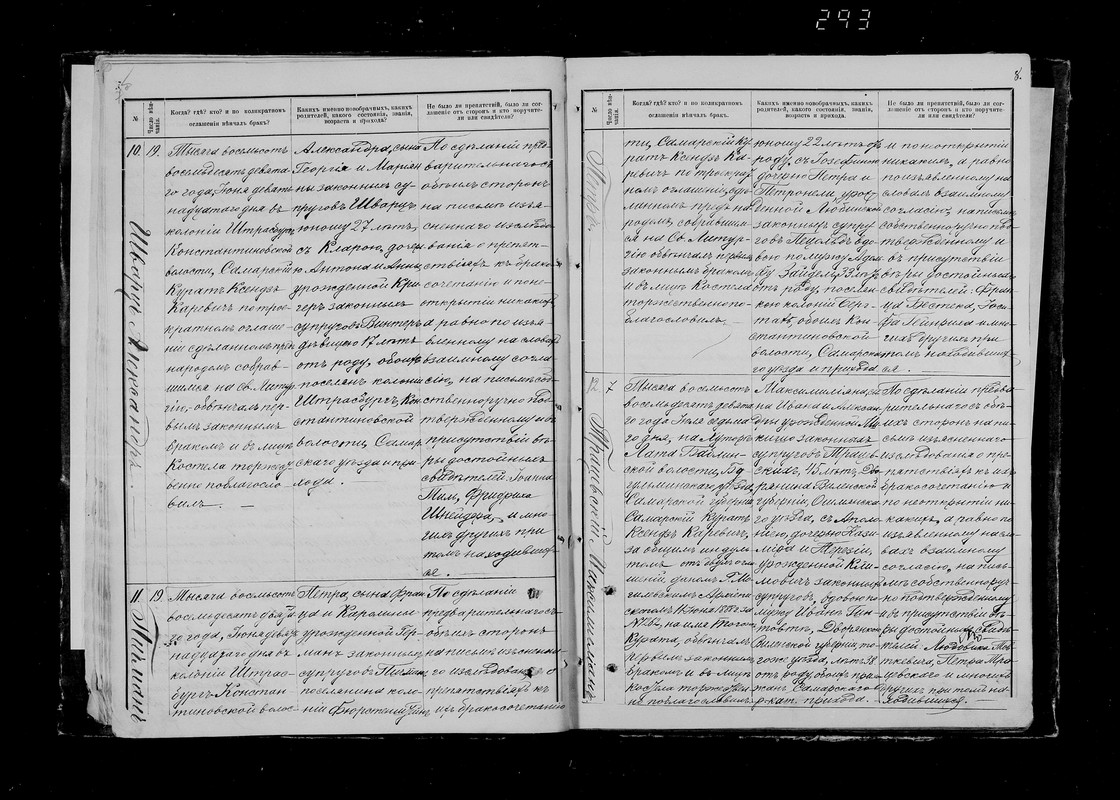 293
8.
№
Число вѣнчанія.
Когда? гдѣ? кто? и по коликратномъ
оглашеніи вѣнчалъ бракъ?
Какихъ именно новобрачныхъ, какихъ
родителей, какого состоянія, званія,
возраста и прихода?
Не было ли препятствій, было ли сог-
лашеніе отъ сторонъ и кто поручите-
ли или свидѣтели?
10.
19.
Тысяча восемьсотъ
восемьдесятъ девята-
го года, Іюня девят-
надцатаго дня въ
колоніи Штрасбургъ
Константиновской
волости, Самарскій
Куратъ Ксендзъ
Каревичъ по трое-
кратномъ оглаше-
ніи сдѣланномъ предъ
народомъ собрав-
шимся на Св. Литур-
гію, обвѣнчалъ пер-
вымъ законнымъ
бракомъ и въ лицѣ
Костела торжест-
венно поблагосло-
вилъ.
Александра, сына
Георгія и Маріан-
ны законныхъ су-
пруговъ Шварцъ,
юношу 27 лѣтъ,
съ Кларою, дочерью
Антона и Анны
урожденной Кри-
геръ законныхъ
супруговъ Винтеръ
дѣвицею 17 лѣтъ
отъ роду, обоихъ
поселянъ колоніи
Штрасбургъ, Кон-
стантиновской
волости, Самар-
скаго уѣзда и при-
хода.
По сдѣланіи пред-
варительнаго съ
обѣихъ сторонъ
на письмѣ изъя-
сненнаго изслѣдо-
ванія о препят-
ствіяхъ къ брако-
сочетанію и не-
открытіи никакихъ
а равно по изъя-
вленному на словахъ
взаимному согла-
сію, на письмѣ соб-
ственноручно под-
твержденному и въ
присутствіи вѣ-
ры достойныхъ
свидѣтелей: Іоанна
Миль, Фридриха
Шнейдера, и мно-
гихъ другихъ при
томъ находивших-
ся.
Шварцъ Александръ.
11.
19.
Тысяча восемьсотъ
восемьдесятъ девята-
го года, Іюня девят-
надцатаго дня въ
колоніи Штрас-
бургъ Констан-
тиновской волос-
Петра, сына Фран-
ца и Каролины
урожденной Гер-
манъ законныхъ
супруговъ
поселянина коло-
ніи
По сдѣланіи
предварительнаго съ
обѣихъ сторонъ
на письмѣ изъяснена-
го изслѣдованія о
препятствіяхъ къ
ихъ бракосочетанію
№
Число вѣнчанія.
Когда? гдѣ? кто? и по коликратномъ
оглашеніи вѣнчалъ бракъ.
Какихъ именно новобрачныхъ, какихъ
родителей, какого состоянія, званія,
возраста и прихода.
Не было ли препятствій, было ли сог-
лашеніе отъ сторонъ и кто поручите-
ли или свидѣтели?
ти, Самарскій Ку-
ратъ Ксендзъ Ка-
ревичъ по троекрат-
номъ оглашеніи, сдѣ-
ланномъ предъ на-
родомъ, собравшим-
ся на Св. Литур-
гію обвѣнчалъ первымъ
законнымъ бракомъ
и въ лицѣ Костела
торжественно по-
благословилъ.
юношу 22 лѣтъ отъ
роду, съ Жозефиною
дочерью Петра и
Петронели, урож-
денной Любинской
законныхъ супру-
говъ вдо-
вою по мужу Адам
Зайделъ, лѣтъ
отъ роду, поселян-
кою колоніи Бер-
обоихъ Кон-
стантиновской
волости, Самарска-
го уѣзда и прихода
и по неоткрытіи
никакихъ, а равно
по изъявленному на
словахъ взаимному
согласію, на письмѣ
собственноручно под-
твержденному и
въ присутствіи
вѣры достойныхъ
свидѣтелей: Фран-
ца
Гейнриха и мно-
гихъ другихъ при
томъ находивших-
ся.
12
7
Тысяча восемьсотъ
восемьдесятъ девята-
го года Іюля седьма-
го дня, на
ской волости, Бу-
гульминскаго уѣзда,
Самарской губерніи
Самарскій Куратъ
Ксендзъ Каревичъ,
на имя того
Курата, обвѣнчалъ
первымъ законнымъ
бракомъ и въ лицѣ
костела торжествен-
но поблагословилъ.
Максимиліана, сы-
на Ивана и Алексан-
дры урожденной
законныхъ
супруговъ Траш-
скихъ, 45 лѣтъ, Дво-
рянина Виленской
губерніи, Ошмянска-
го уѣзда, съ Аполо-
ніею, дочерью Кази-
міра и Терезіи,
урожденной
законныхъ
супруговъ, вдовою по
мужу Иванѣ Гин-
товтъ, Дворянкою
Виленской губерніи, то-
гоже уѣзда, лѣтъ 38
отъ роду, обоихъ при-
жанъ Самарскаго
р.-кат. прихода.
По сдѣланіи предва-
рительнаго съ обѣ-
ихъ сторонъ на пи-
сьмѣ изъясненнаго
изслѣдованія о пре-
пятствіяхъ къ ихъ
бракосочетанію и
по неоткрытіи ни-
какихъ, а равно по
изъявленному на сло-
вахъ взаимному
согласію, на пись-
мѣ собственноруч-
но подтвержденному
и въ присутствіи вѣ-
ры достойныхъ свидѣ-
телей: Людовика
Петра
и многихъ
другихъ при томъ на-
ходившихся.
Максимиліанъ